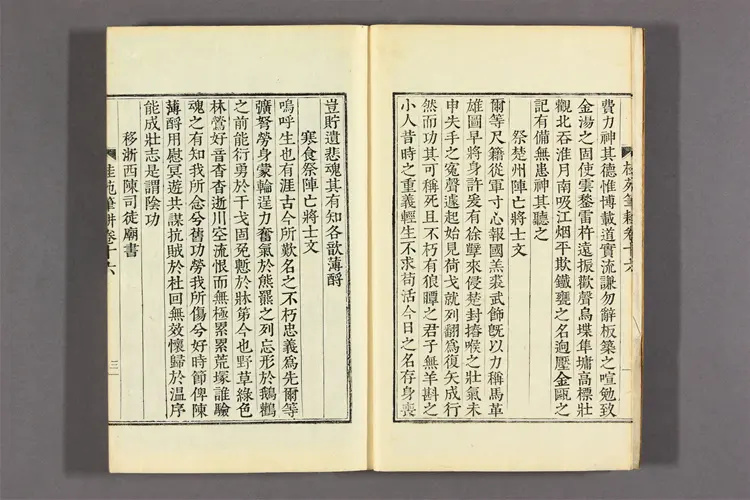 桂苑筆耕卷十六
費力神其德惟博載道實流謙勿辭板築之喧勉致
金湯之固使雲鍪雷杵遠振歡聲鳥堞隼墉高標壯
觀北吞淮月南吸江烟平欺鐵甕之名迥壓金甌之
記有備無患神其聽之
祭楚州陣亡將士文
爾等尺籍從軍寸心報國羔裘武飾旣以力稱馬革
雄圖早將身許爰有徐孽來侵楚封摏喉之壯氣未
申失手之寃聲遽起始見荷戈就列翻爲復矢成行
然而功其可稱死且不朽有狼瞫之君子無羊斟之
小人昔時之重義輕生不求苟活今日之名存身喪
豈貯遺悲魂其有知各歆薄酹
寒食祭陣亡將士文
嗚呼生也有涯古今所歎名之不朽忠義爲先爾等
彍弩勞身蒙輪逞力奮氣於熊羆之列忘形於鵝鸛
之前能衍勇於干戈固免慙於牀笫今也野草綠色
林鶯好音杳杳逝川空流恨而無極累累荒塚誰驗
魂之有知我所念兮舊功勞我所傷兮好時節俾陳
薄酹用慰冥遊共謀抗賊於杜回無效懷歸於溫序
能成壯志是謂陰功
移浙西陳司徒廟書
桂苑筆耕卷十六
三